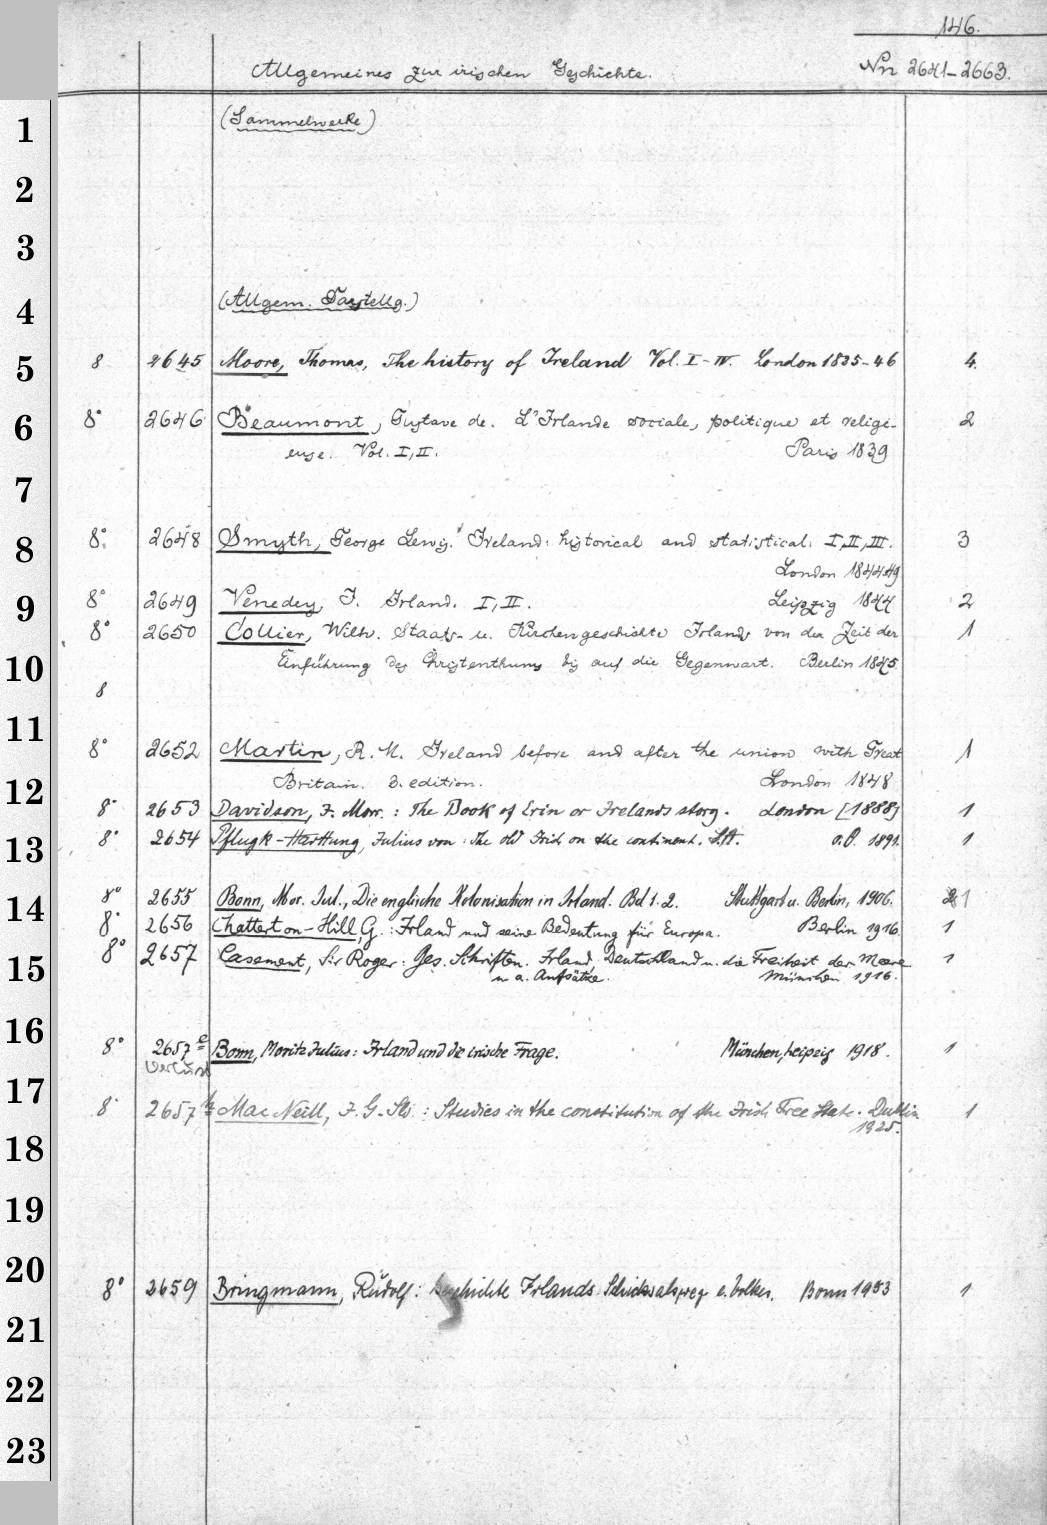 146.
Allgemeines zur irischen Geschichte. Nrr 2641-2663.
1
(Sammelwerke)
2
3
4
(Allgem. Darstellg.)
5
8 2645 Moore, Thomas, The history of Ireland Vol. I-IV. London 1835-46 4.
6
8° 2646 Beaumont, Gustave de. L'Irlande sociale, politique et religi- 2
euse. Vol. I, II. Paris 1839
7
8
8° 2648 Smyth, George Lewis. Ireland: historical and statistical. I, II, III. 3
London 1844-49
9
8° 2649 Venedey, J. Irland. I, II. Leipzig 1844 2
8° 2650 Collier, Wilh. Staats- u. Kirchengeschichte Irlands von der Zeit der 1
10
Einführung des Christenthums bis auf die Gegenwart. Berlin 1845
8
11
8° 2652 Martin, R. M. Ireland before and after the union with Great 1
12
Britain. 3. edition. London 1848
8° 2653 Davidson, F. Morr. : The Book of Erin or Irelands story. London [1888] 1
13
8° 2654 Pflugk-Harttung, Julius von: The old Irish on the continent. S.A. o.O. 1891. 1
14
8° 2655 Bonn, Mor. Jul., Die englische Kolonisation in Irland. Bd 1. 2. Stuttgart u. Berlin, 1906. 1
8° 2656 Chatterton-Hill, G. : Irland und seine Bedeutung für Europa. Berlin 1916. 1
15
8° 2657 Casement, Sir Roger: Ges. Schriften. Irland, Deutschland u. die Freiheit der Meere 1
u. a. Aufsätze. München 1916.
16
8° 2657e Bonn, Moritz Julius: Irland und die irische Frage. München, Leipzig 1918. 1
Verlust
17
8° 2657h Mac Neill, J. G. Sw. : Studies in the constitution of the Irish Free State. Dublin 1
1925.
18
19
20
8° 2659 Bringmann, Rudolf: Geschichte Irlands. Schicksalsweg e. Volkes. Bonn 1953 1
21
22
23